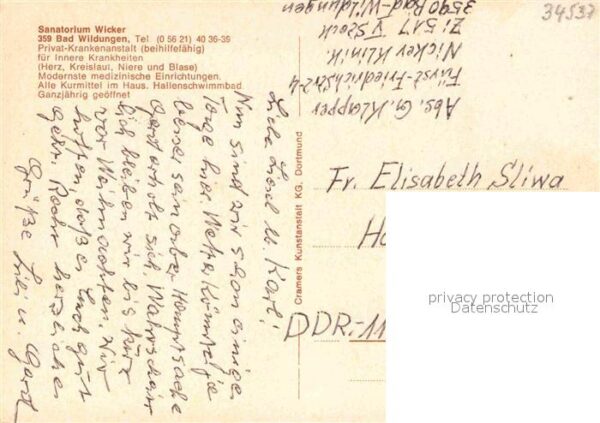 Sanatorium Wicker
359 Bad Wildungen, Tel. (0 56 21) 40 36-35
Privat-Krankenanstalt (beihilfefähig)
für Innere Krankheiten
(Herz, Kreislauf, Niere und Blase)
Modernste medizinische Einrichtungen.
Alle Kurmittel im Haus. Hallenschwimmbad
Ganzjährig geöffnet
34537
Abs. G. Klapper
Fürst-Friedrichstr 4
Wicker Klinik.
Zi 517 V Stock
3590 Bad-Wildungen
Liebe Liesel u. Karl!
Nun sind wir schon einige
Tage hier. Wetter könnte ja
besser sein aber Hauptsache
Gerd erholt sich. Wahrschein
lich bleiben wir bis kurz
vor Weihnachten. Wir
hoffen daß es Euch gut
geht. Recht herzliche
Grüße u. Gerd
Cramers Kunstanstalt KG, Dortmund
Fr. Elisabeth Sliwa
DDR.-11
privacy protection
Datenschutz